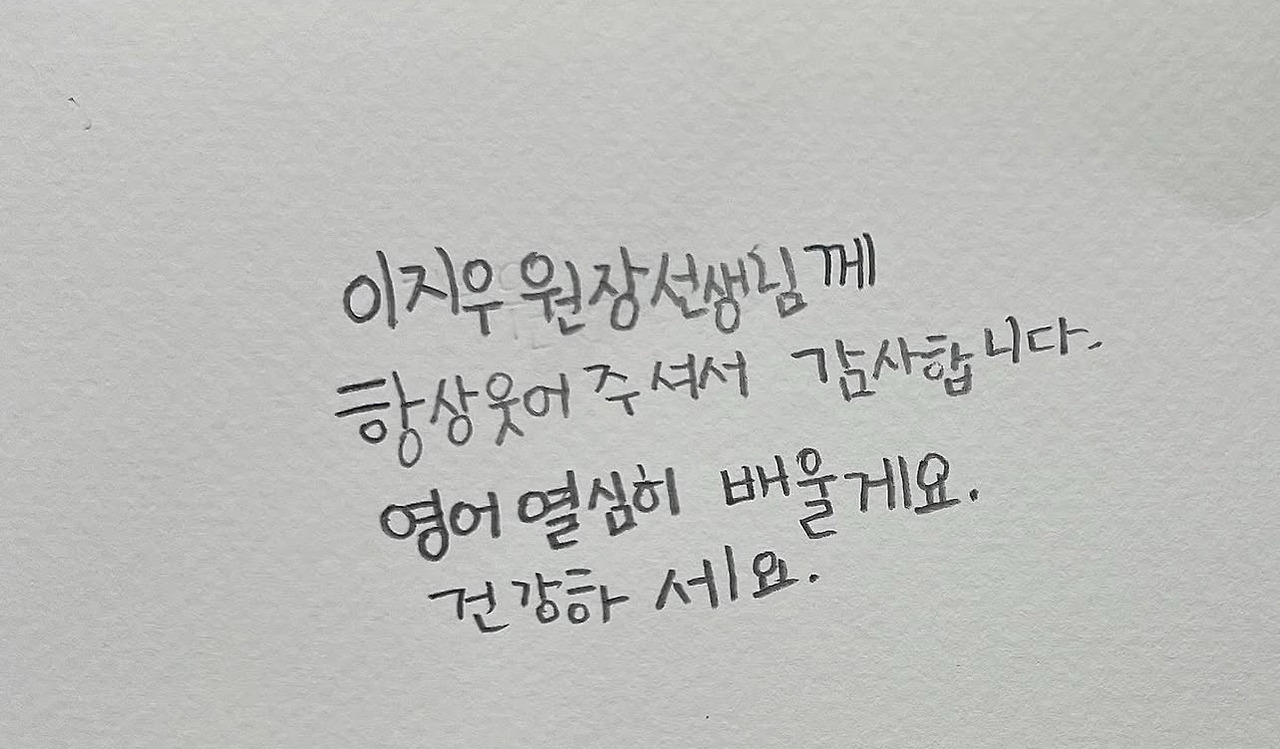 이지우 원장선생님께
항상웃어주셔서 감사합니다.
영어열심히 배울게요.
건강하세요.